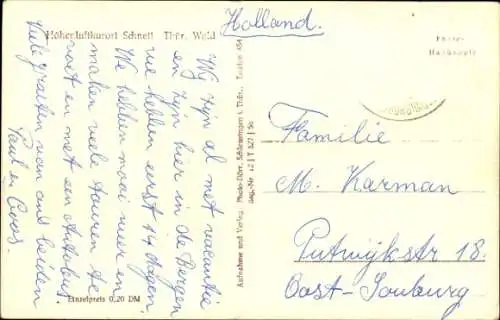 Höhenluftkurort Schnett Thür. Wald
Holland.
Wij zijn al met vacantie
en zijn hier in de Bergen
we hebben eerst 14 dagen.
We hebben mooi weer en
maken veel touren te
voet en met een Autobus.
Vele groeten van ons beiden
Paul en Coos.
Einzelpreis 0,20 DM
Aufnahme und Verlag Photo-Dörr, Schleusingen i. Thür., Telefon 454
Familie
M. Karman
Putwijkstr 18.
Oost-Souburg